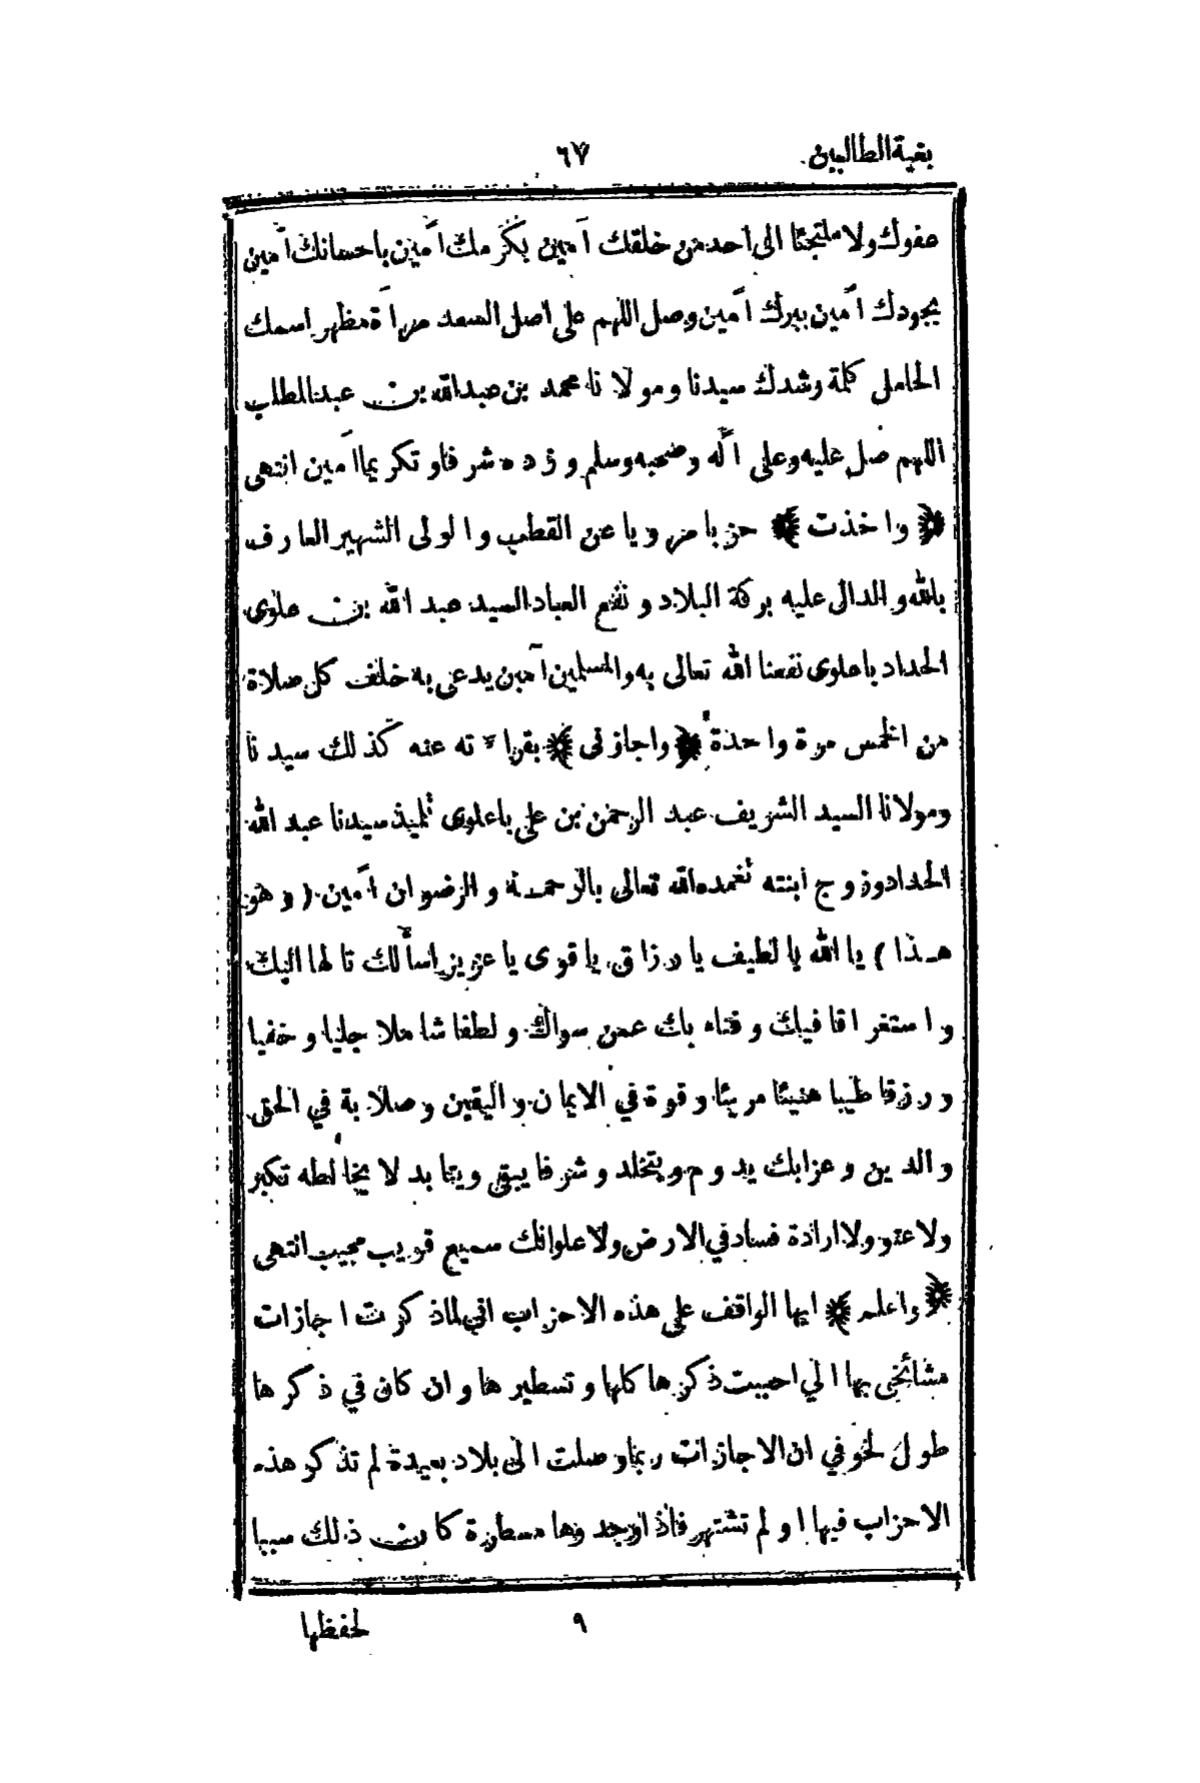 بغية الطالبين
٦٧
عفوك ولا ملتجئا الى احد من خلقك آمين بكرمك آمين باحسانك آمين
بجودك آمين ببرك آمين وصل اللهم على اصل السعد مرآة مظهر اسمك
الحامل كلمة رشدك سيدنا ومولانا محمد بن عبدالله بن عبدالمطلب
اللهم صل عليه وعلى آله وصحبه وسلم وزده شرفا وتكريما آمين انتهى
﴿ واخذت ﴾ حزبا مرويا عن القطب والولى الشهير العارف
بالله والدال عليه بركة البلاد ونفع العباد السيد عبد الله بن علوى
الحداد باعلوى نفعنا الله تعالى به والمسلمين آمين يدعى به خلف كل صلاة
من الخمس مرة واحدة ﴿ واجازنى ﴾ بقراءته عنه كذلك سيدنا
ومولانا السيد الشريف عبد الرحمن بن على باعلوى تلميذ سيدنا عبد الله
الحداد وزوج ابنته تغمده الله تعالى بالرحمة والرضوان آمين ( وهو
هذا ) يا الله يا لطيف يا رزاق يا قوى يا عزيز اسألك تالها اليك
واستغراقا فيك وفناء بك عمن سواك ولطفا شاملا جليا وخفيا
ورزقا طيبا هنيئا مريئا وقوة في الايمان واليقين وصلابة في الحق
والدين وعزا بك يدوم ويتخلد وشرفا يبقى ويتابد لا يخالطه تكبر
ولا عتو ولا ارادة فساد في الارض ولا علوا انك سميع قريب مجيب انتهى
﴿ واعلم ﴾ ايها الواقف على هذه الاحزاب اني لما ذكرت اجازات
مشائخى بها الي احببت ذكرها كلها وتسطيرها وان كان في ذكرها
طول لخوفي ان الاجازات ربما وصلت الى بلاد بعيدة لم تذكر هذه
الاحزاب فيها او لم تشتهر فاذا وجدوها مسطرة كان ذلك سببا
٩
لحفظها